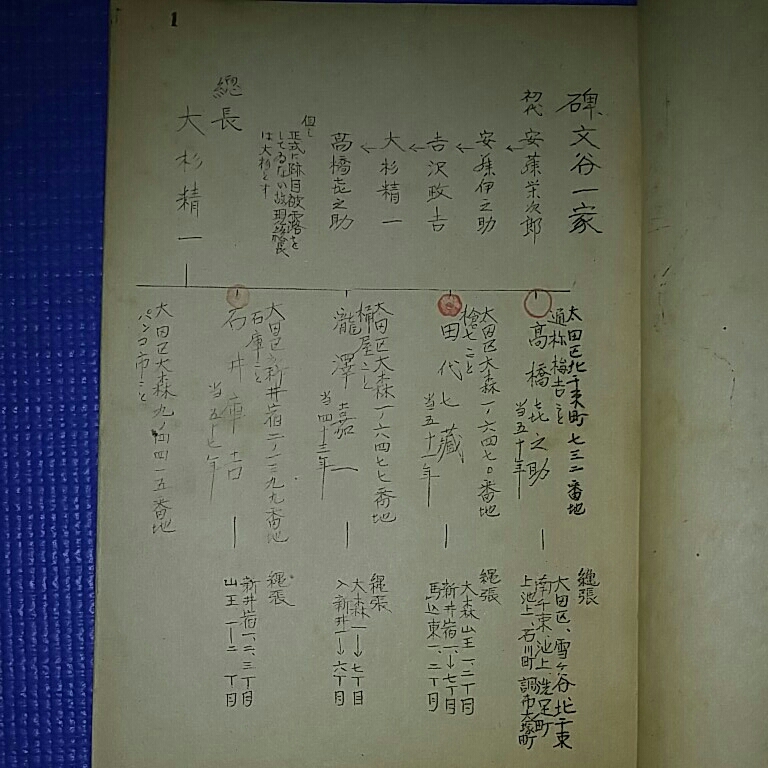 1
碑文谷一家
初代 安藤栄次郎
安藤伊之助
吉沢政吉
大杉精一
高橋㐂之助
但し
正式に跡目披露を
してゐない故現総長
は大杉とす
總長
大杉精一
大田区北千束町七三二番地
通称梅吉こと
高橋㐂之助
当五十年
縄張
大田区、雪ヶ谷、北千束
南千束、池上、洗足町
上池上、石川町、調布大塚町
大田区大森一ノ六四七〇番地
槍七こと
田代七藏
当五十一年
縄張
大森山王一、二丁目
新井宿一、→七丁目
馬込東一、二丁目
大田区大森一ノ六四七七番地
桶屋こと
瀧澤嘉一
当四十三年
縄張
大森一→七丁目
入新井一→六丁目
大田区新井宿二ノ二三九九番地
石庫こと
石井庫吉
当五十七年
縄張
新井宿一、二、三丁目
山王一、二丁目
大田区大森九ノ四四一五番地
パンコ市こと